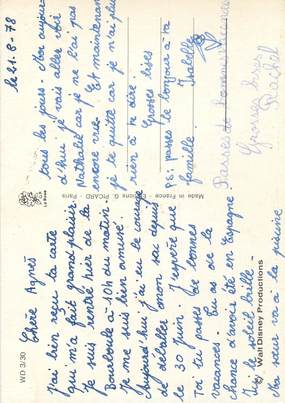 le 21-8-78
Chère Agnès
J'ai bien reçu ta carte
qui m'a fait grand plaisir
Je suis rentré hier de la
Bourboule à 10h du matin
Je me suis bien amusé.
Aujourd'hui j'ai eu le courage
de déballer mon sac depuit
le 30 juin. J'espère que
Toi tu passes de bonnes
vacances. Tu as de la
chance d'avois été en Espagne
Ici le soleil brille
Ma sœur va a la piscine
tous les jours. Moi aujour-
d'hui je vais aller voir
Nathalie car je ne l'ai pas
encore vue. Et maintenant
je te quitte car je n'ai plus
rien à te dire.
Grosses bises
Isabelle
P.S: passes le bonjour à ta
famille
Grosses bises
Rachel
WD 3/30
La Rose
Made in France - Editions G. PICARD - Paris
© Walt Disney Productions